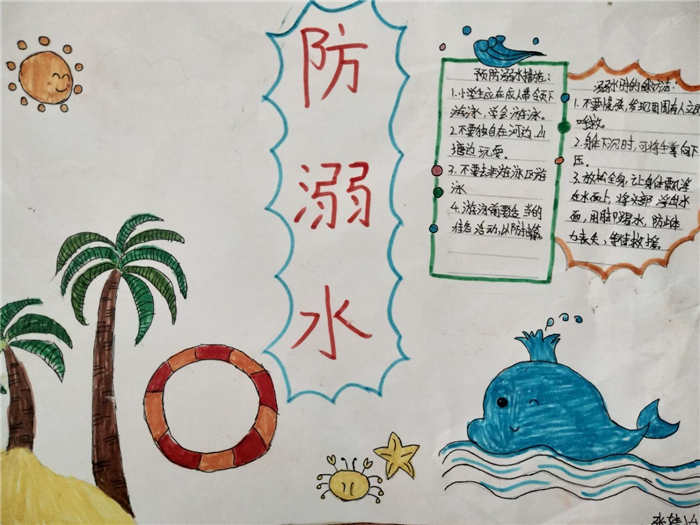 防
溺
水
预防溺水措施:
1.小学生应在成人带领下
游泳，学会游泳。
2.不要独自在河边、山
塘边玩耍。
3.不要去非游泳区游
泳
4.游泳前要做适当的
准备活动，以防抽筋。
溺水时的自救方法:
1.不要慌张，发现周围有人立即
呼救。
2.身体下沉时，可将手掌向下
压。
3.放松全身，让身体飘浮
在水面上，将头部浮出水
面，用脚踢水，防止体
力丧失，等待救援。